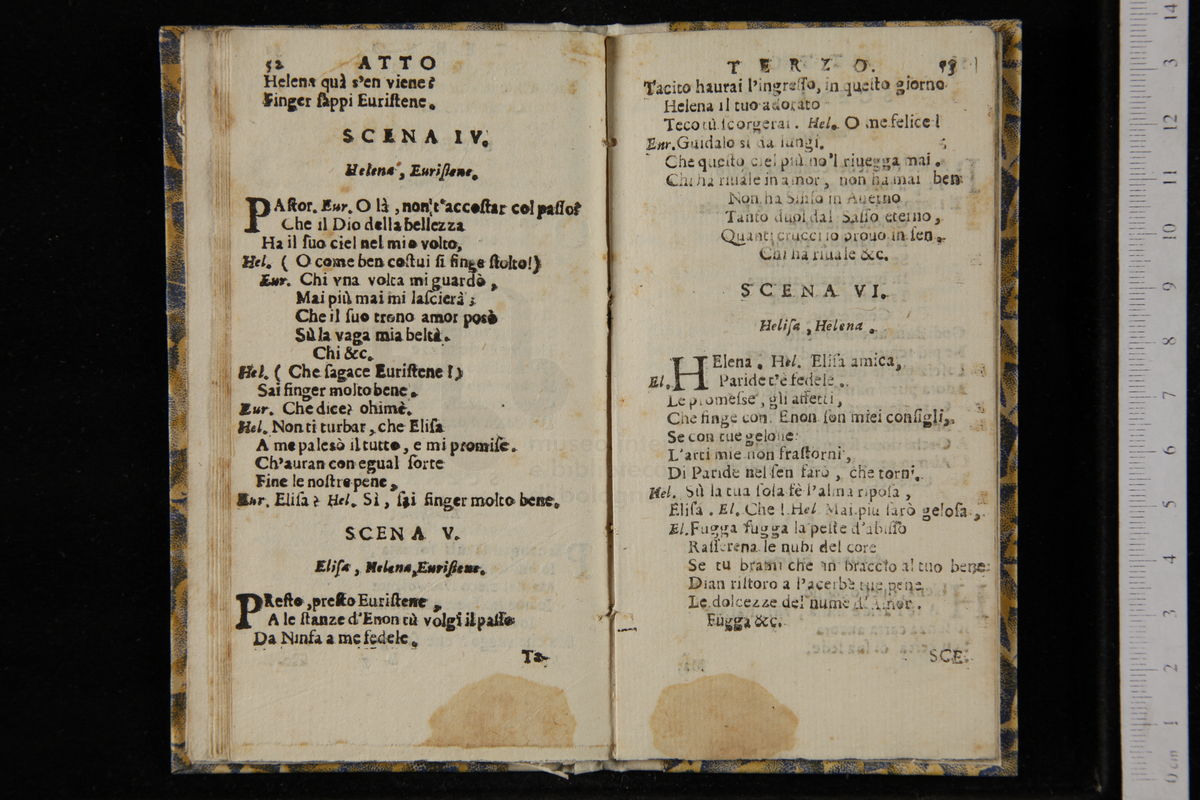 52 ATTO
Helena quà s'en viene?
Finger sappi Euristene.
SCENA IV.
Helena, Euristene.
PAstor. Eur. O là, non t'accostar col passo?
Che il Dio della bellezza
Ha il suo ciel nel mio volto,
Hel. ( O come ben costui si finge stolto!)
Eur. Chi vna volta mi guardò,
Mai più mai mi lascierà;
Che il suo trono amor posò
Sù la vaga mia beltà.
Chi &c.
Hel. ( Che sagace Euristene!)
Sai finger molto bene.
Eur. Che dice? ohimè.
Hel. Non ti turbar, che Elisa
A me palesò il tutto, e mi promise.
Ch'auran con egual sorte
Fine le nostre pene,
Eur. Elisa? Hel. Sì, sai finger molto bene.
SCENA V.
Elisa, Helena, Euristene.
PResto, presto Euristene,
A le stanze d'Enon tù volgi il passo
Da Ninfa a me fedele.
Ta-
TERZO. 53
Tacito haurai l'ingresso, in questo giorno
Helena il tuo adorato
Teco tù scorgerai. Hel. O me felice!
Eur. Guidalo sì da lungi.
Che questo ciel più no'l riuegga mai.
Chi ha riuale in amor, non ha mai ben
Non ha Sinso in Auerno
Tanto duol dal Sasso eterno,
Quanti crucci io prouo in sen.
Chi ha riuale &c.
SCENA VI.
Helisa, Helena.
El. HElena. Hel. Elisa amica,
Paride t'è fedele.
Le promesse, gli affetti,
Che finge con Enon son miei consigli,
Se con tue gelosie
L'arti mie non frastorni,
Di Paride nel sen farò, che torni.
Hel. Sù la tua sola fè l'alma riposa,
Elisa. El. Che! Hel Mai più sarò gelosa.
El. Fugga fugga la peste d'abisso
Rasserena le nubi del core
Se tu brami che in braccio al tuo bene
Dian ristoro a l'acerbe tue pene
Le dolcezze del nume d'Amor.
Fugga &c.
SCE-